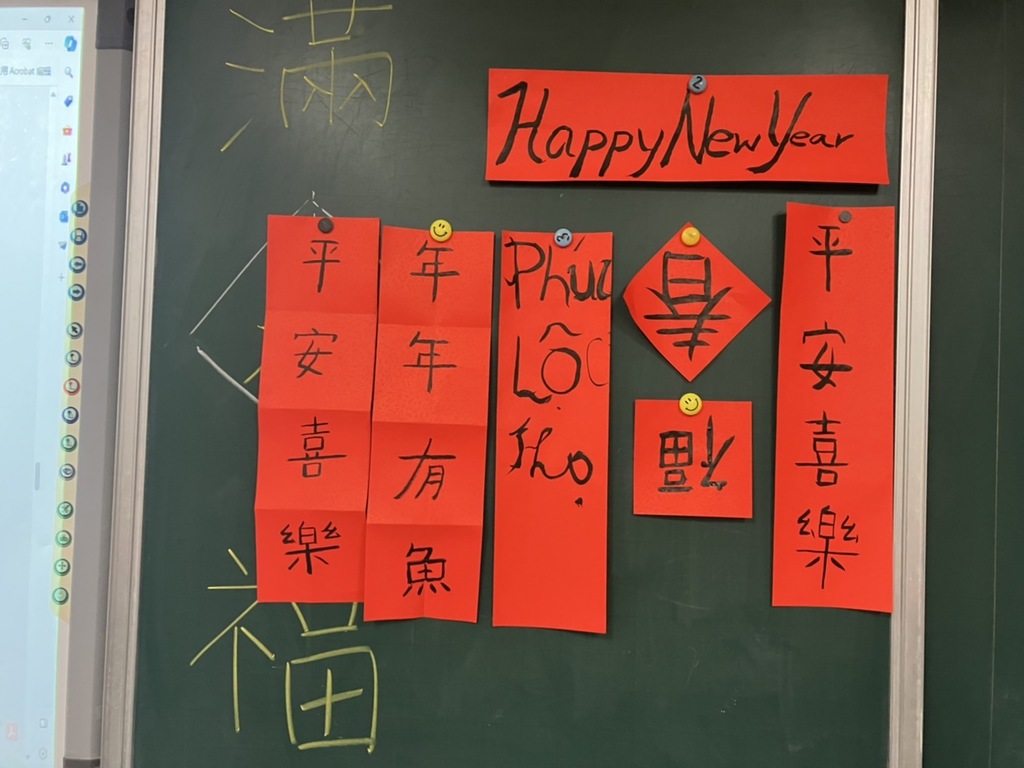 滿
Happy New Year
平安喜樂
年年有魚
Phúc
Lộc
Thọ
春
福
平安喜樂
福
用 Acrobat 編輯